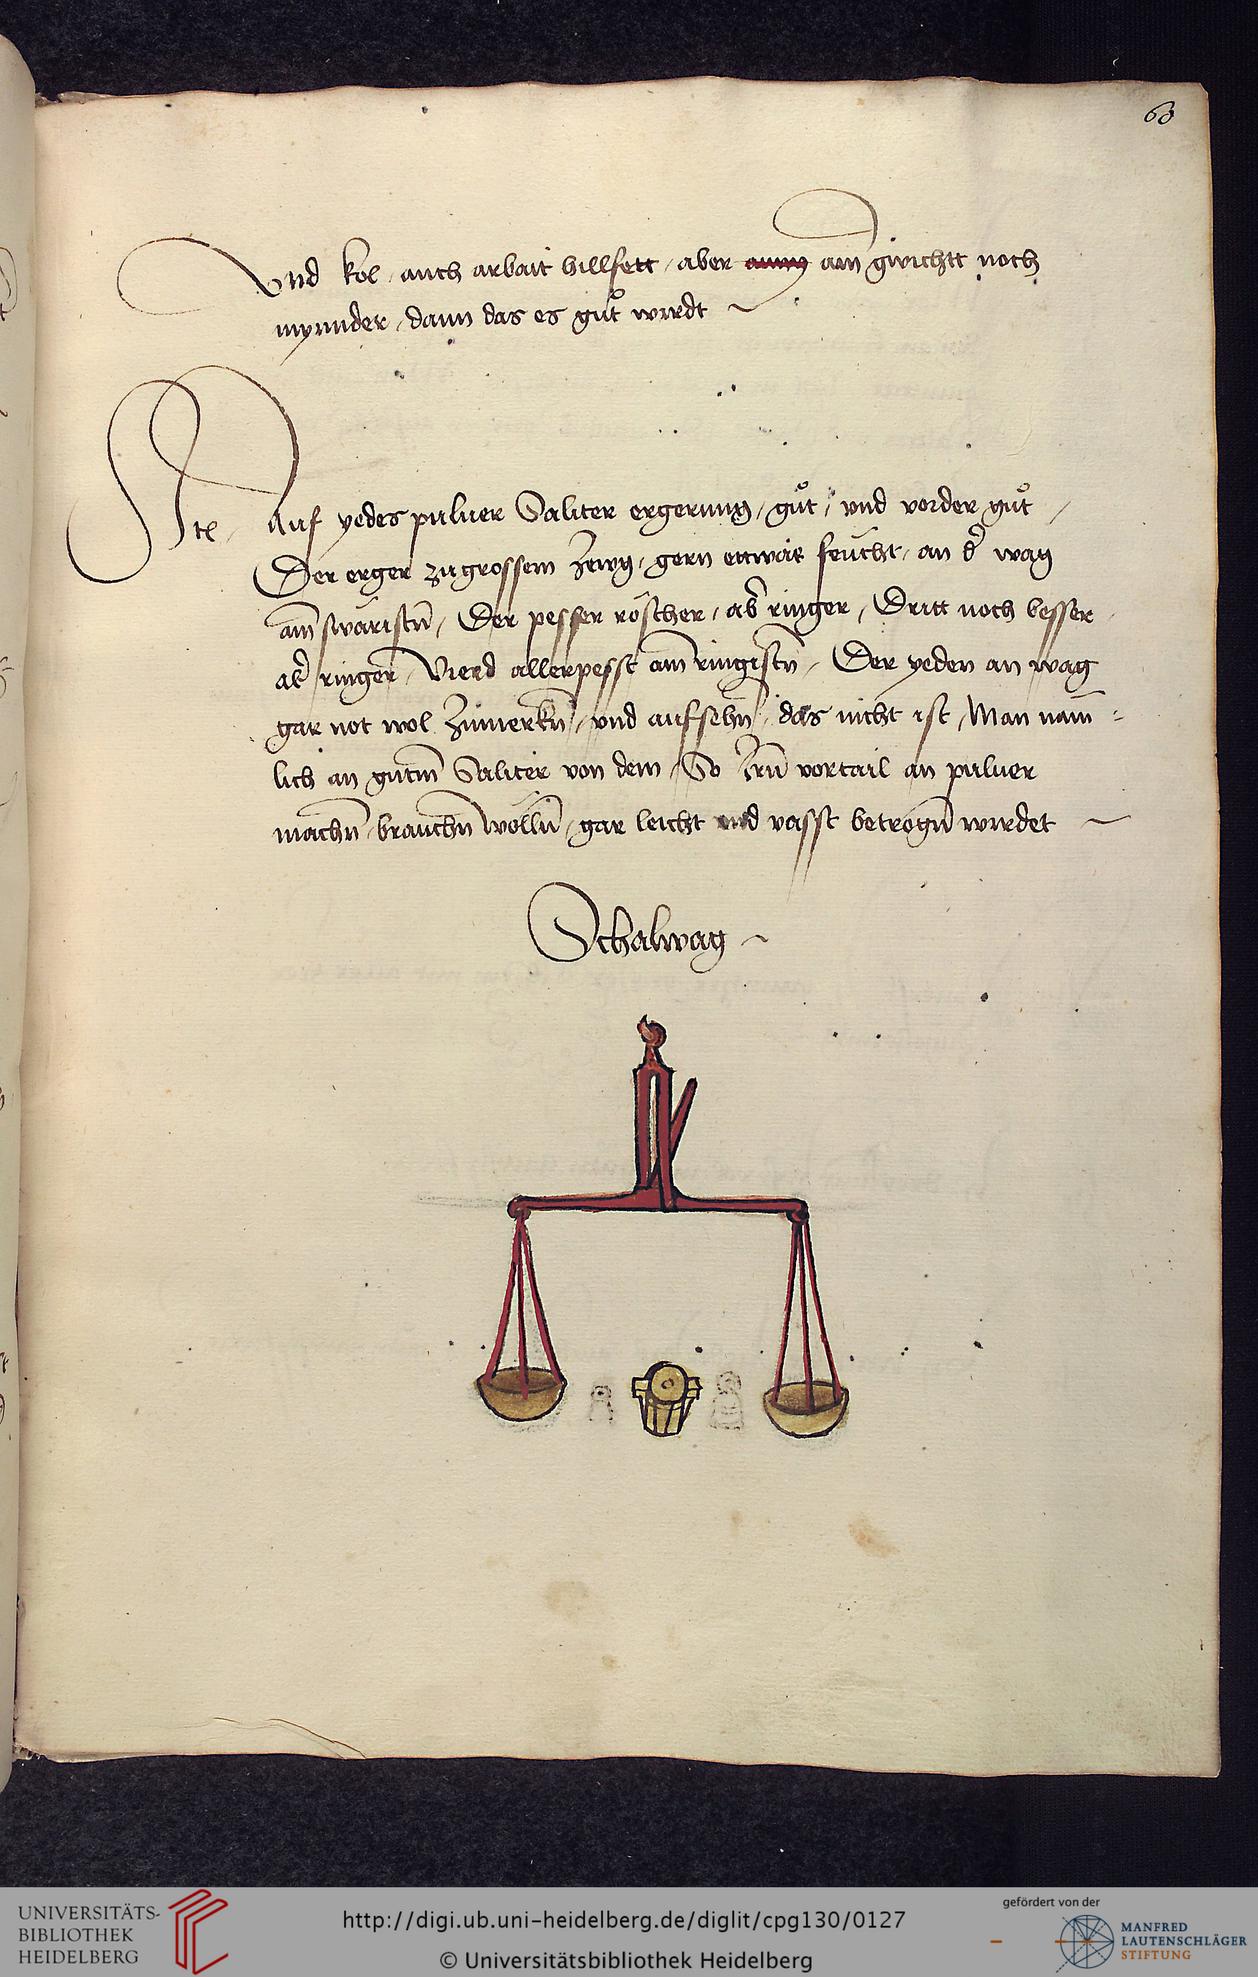 60
Und kol, auch arbait hillfett, aber am gwichtt noch
mynnder, dann das es gůt wirdt ~
Ite, Auf yedes puluer Saliter ergerung, gůt, und vorder gůt,
Der erger zu grossem Zewg, gern ettwas feucht, an d' wag
am̄ swäristn̄, Der pesser röscher, ab' ringer, Dritt noch besser
ab' ringer, Vierd allerpesst am̄ ringistn̄, Der yeden an wag
gar not wol Zumerkn̄, und aufsehn̄, das nicht ist, Man nam̄=
lich an gutm̄ Saliter von dem, So Irn̄ vortail an puluer
machn̄, brauchn̄ wölln̄, gar leicht und vasst betrogn̄ wirdet ~
Schalwag ~
UNIVERSITÄTS-
BIBLIOTHEK
HEIDELBERG
http://digi.ub.uni-heidelberg.de/diglit/cpg130/0127
© Universitätsbibliothek Heidelberg
gefördert von der
MANFRED
LAUTENSCHLÄGER
STIFTUNG